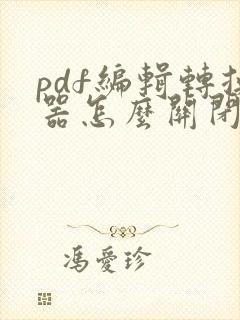 pdf編輯轉換
器怎麼關閉
馮愛珍